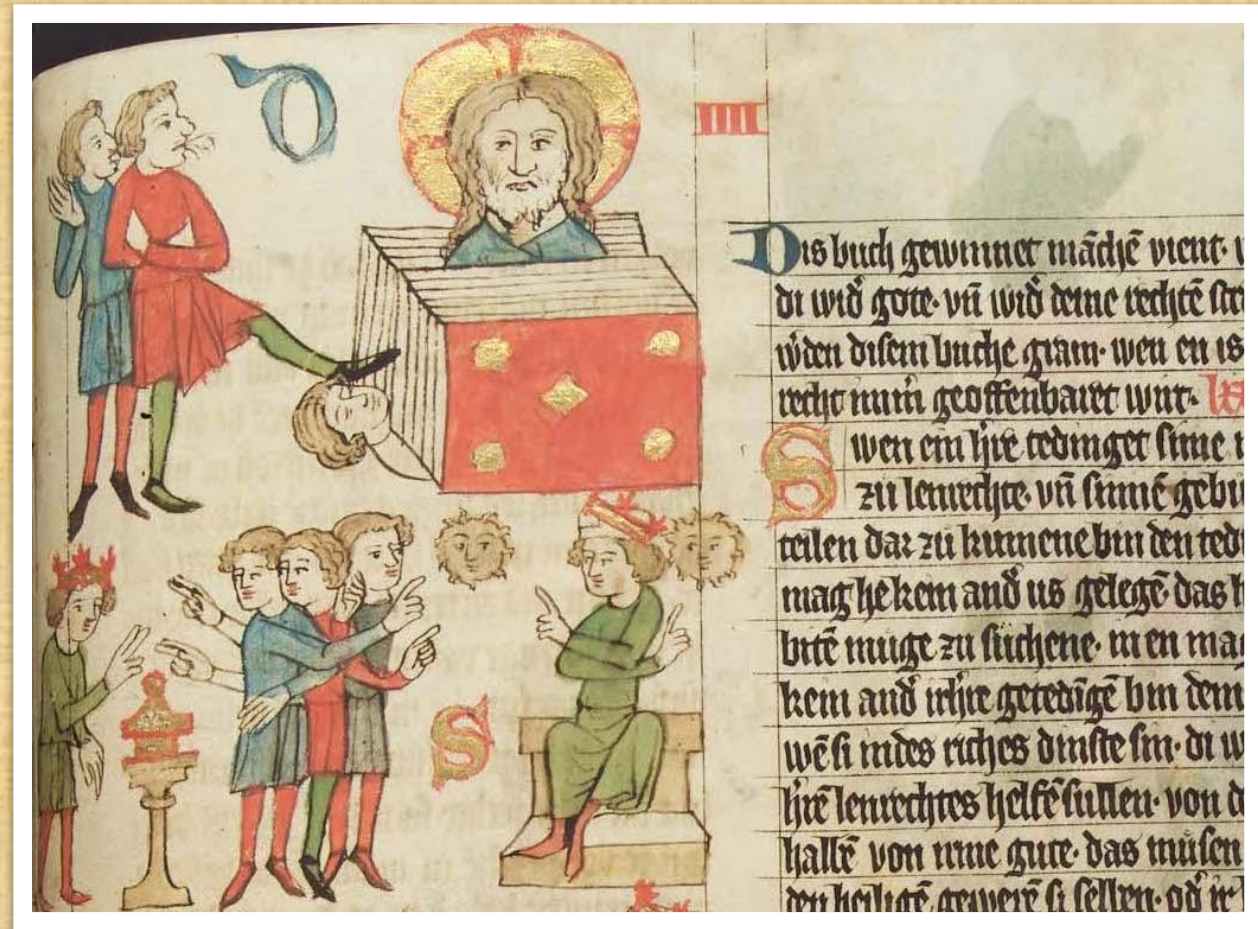 D
IIII
Dis buch gewinnet mãchẽ vient·
di wid̉ gote· vñ wid̉ deme rechtẽ
w̉den disem buche gram· wen en is
recht geoffenbaret wirt·
Swen ein h̉re tedinget sime
zu lenrechte· vñ sinnẽ
teilen dar zu kumene bin den
mag he kein and̉ us gelegẽ das
bitẽ muge zu suchene· men
kein and̉ getedĩgẽ bin dem
wẽ si indes riches dinste sin· di
h̉rẽ lenrechtes helfẽ sullen· von
hallẽ von gute· das musen
den heiligẽ gewerẽ si sellen· od̉ ir
S